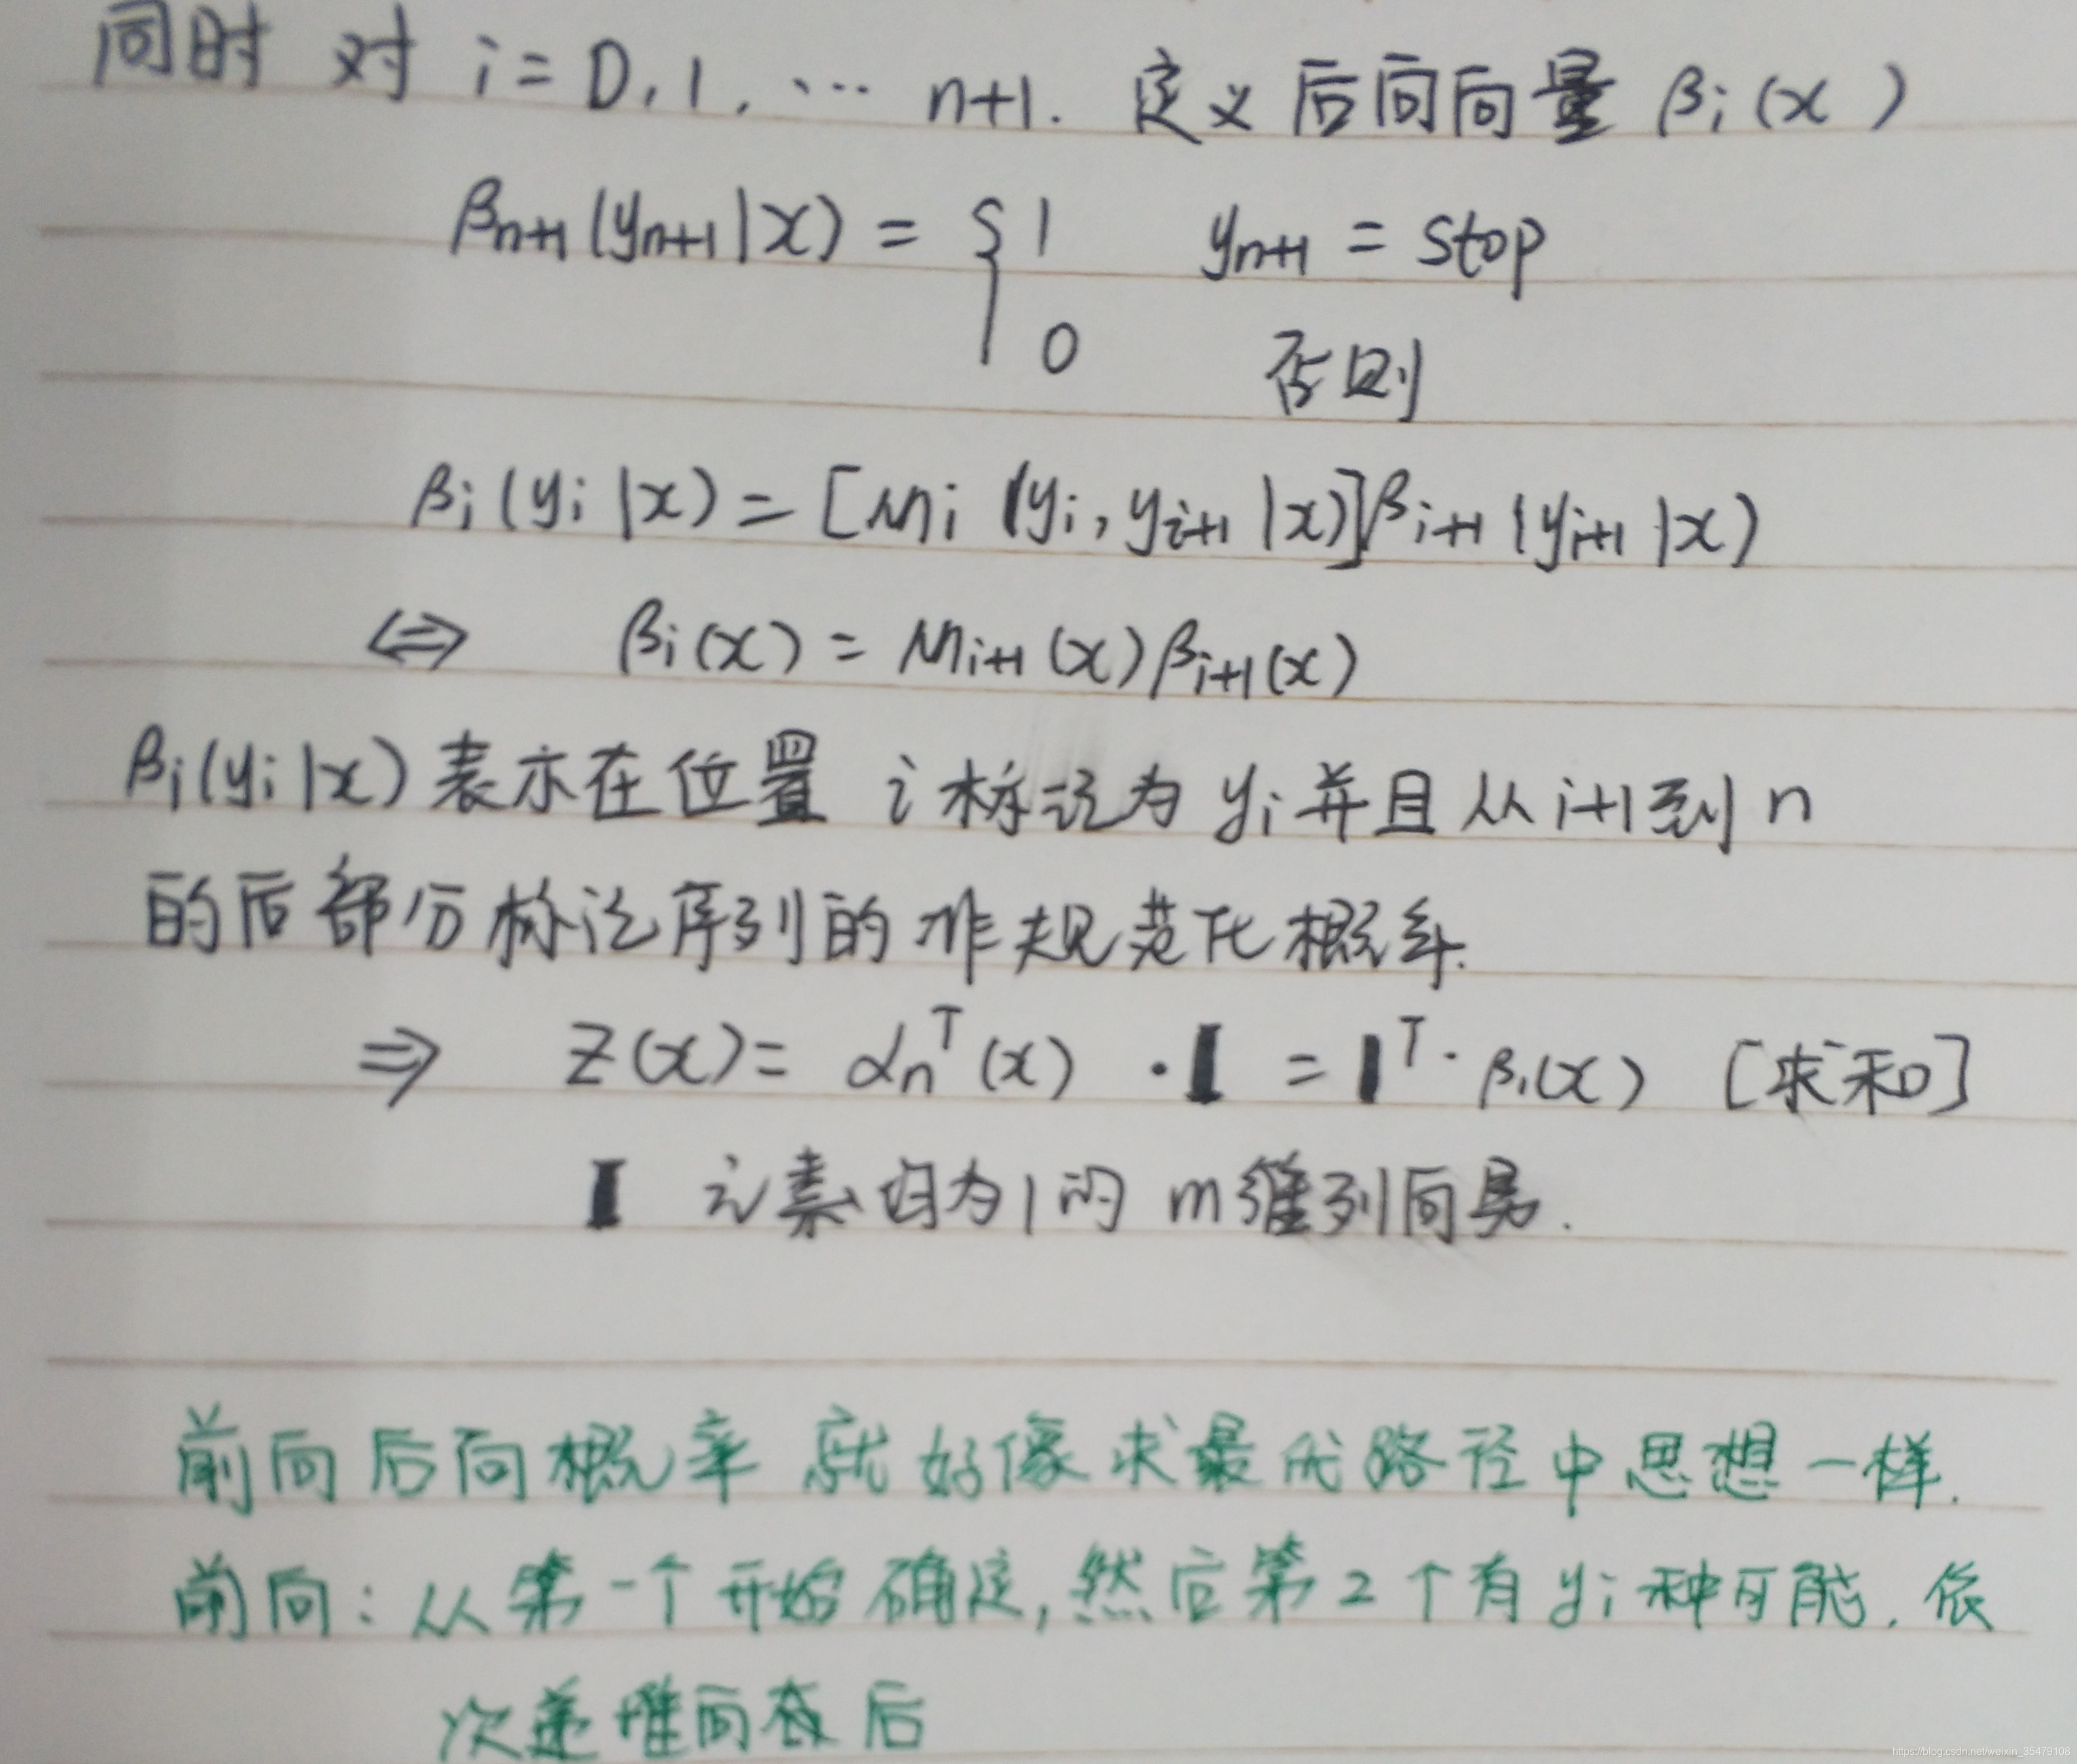 同时 对 i = 0, 1, ... n+1. 定义后向向量 βi(x)
βn+1(yn+1|x) = { 1 yn+1 = stop
0 否则
βi(yi|x) = [Mi(yi, yi+1|x)]βi+1(yi+1|x)
⇔ βi(x) = Mi+1(x)βi+1(x)
βi(yi|x)表示在位置 i 标记为 yi 并且从 i+1 到 n
的后部分标记序列的非规范化概率.
⇒ Z(x) = αn^T(x) · 1 = 1^T · β1(x) [求和]
1 元素均为1的 m维列向量.
前向后向概率 就好像求最优路径中思想一样.
前向: 从第一个开始确定, 然后第2个有 yi 种可能. 依
次递推向 后
https://blog.csdn.net/weixin_35479108